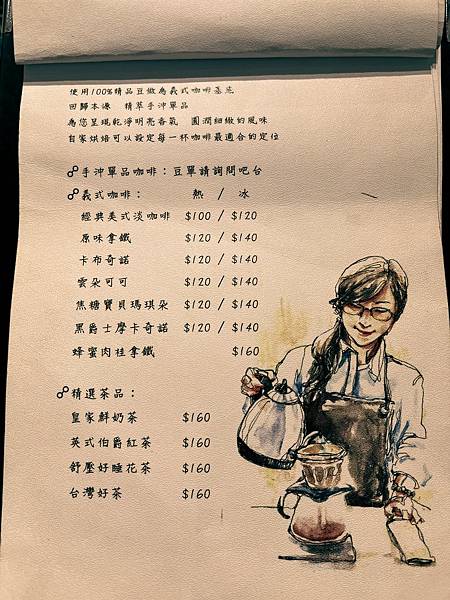 使用100%精品豆做為義式咖啡基底
回歸本源 精萃手沖單品
為您呈現乾淨明亮香氣 圓潤細緻的風味
自家烘焙可以設定每一杯咖啡最適合的定位
手沖單品咖啡：豆單請詢問吧台
義式咖啡： 熱 / 冰
經典美式淡咖啡 $100 / $120
原味拿鐵 $120 / $140
卡布奇諾 $120 / $140
雲朵可可 $120 / $140
焦糖寶貝瑪琪朵 $120 / $140
黑爵士摩卡奇諾 $120 / $140
蜂蜜肉桂拿鐵 $160
精選茶品：
皇家鮮奶茶 $160
英式伯爵紅茶 $160
舒壓好睡花茶 $160
台灣好茶 $160